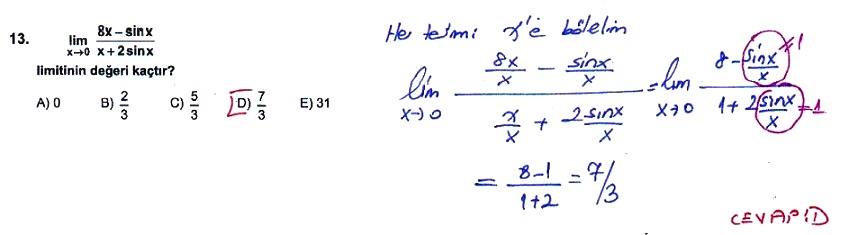 13. lim x→0 (8x – sinx)/(x + 2sinx)
limitinin değeri kaçtır?
A) 0 B) 2/3 C) 5/3 D) 7/3 E) 31
Her terimi x'e bölelim
lim x→0 (8x/x – sinx/x)/(x/x + 2sinx/x) = lim x→0 (8 – sinx/x → 1)/(1 + 2 sinx/x = 1)
= (8-1)/(1+2) = 7/3
CEVAP D